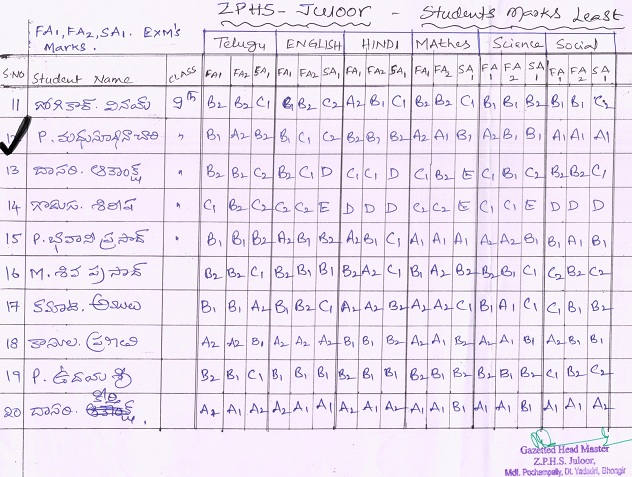 ZPHS - Juloor - Students Marks Least
FA1, FA2, SA1. EXM's
Marks.
Telugu ENGLISH HINDI MATHes Science Social
S.NO Student Name CLASS FA1 FA2 SA1 FA1 FA2 SA1 FA1 FA2 SA1 FA1 FA1 SA1 FA1 FA2 SA1 FA1 FA1 SA1
11 వినయ్ 9th B2 B2 C1 B2 C2 A2 B1 C1 B2 B2 C1 B1 B1 B2 B1 B1 C2
12 P. మధుసూధనాచారి " B1 A2 B2 B1 C1 C2 B2 B1 B2 A2 A1 B1 A2 B1 B1 A1 A1 A1
13 దాసరి. " B2 B2 C2 B2 C1 D C1 C1 D C1 B2 E C1 B1 C2 B2 B2 C1
14 శిరీష " C1 B2 C2 C2 C2 E D D D C2 C2 E C1 C1 E D D D
15 P. భవాని ప్రసాద్ " B1 B1 B2 A2 B1 B2 A2 B1 C1 A1 A1 A1 A2 A2 B1 B1 A1 B1
16 M. శివ ప్రసాద్ B2 B2 C1 B2 B1 B1 B2 A2 C1 B1 A2 B2 B2 B1 C1 C2 B2 C2
17 అములు B1 B1 A2 B1 B2 C1 A2 A2 B2 A2 A2 C1 B1 A1 C1 C1 B2 B2
18 A2 A2 B1 A2 A2 A2 B1 B1 B2 A2 A1 B2 A2 A1 B1 A2 B1 B1
19 P. ఉదయ శ్రీ B2 B1 C1 B1 B1 B1 B2 B1 B1 B2 B1 B2 B2 B1 B2 C1 B2 C2
20 దాసరి. A2 A1 A2 A2 A1 A1 A2 A1 A2 A1 A1 B1 A1 A1 B1 A1 A1 A2
Gazetted Head Master
Z.P.H.S. Juloor,
Mdl. Pochampally, Dt. Yadadri, Bhongir